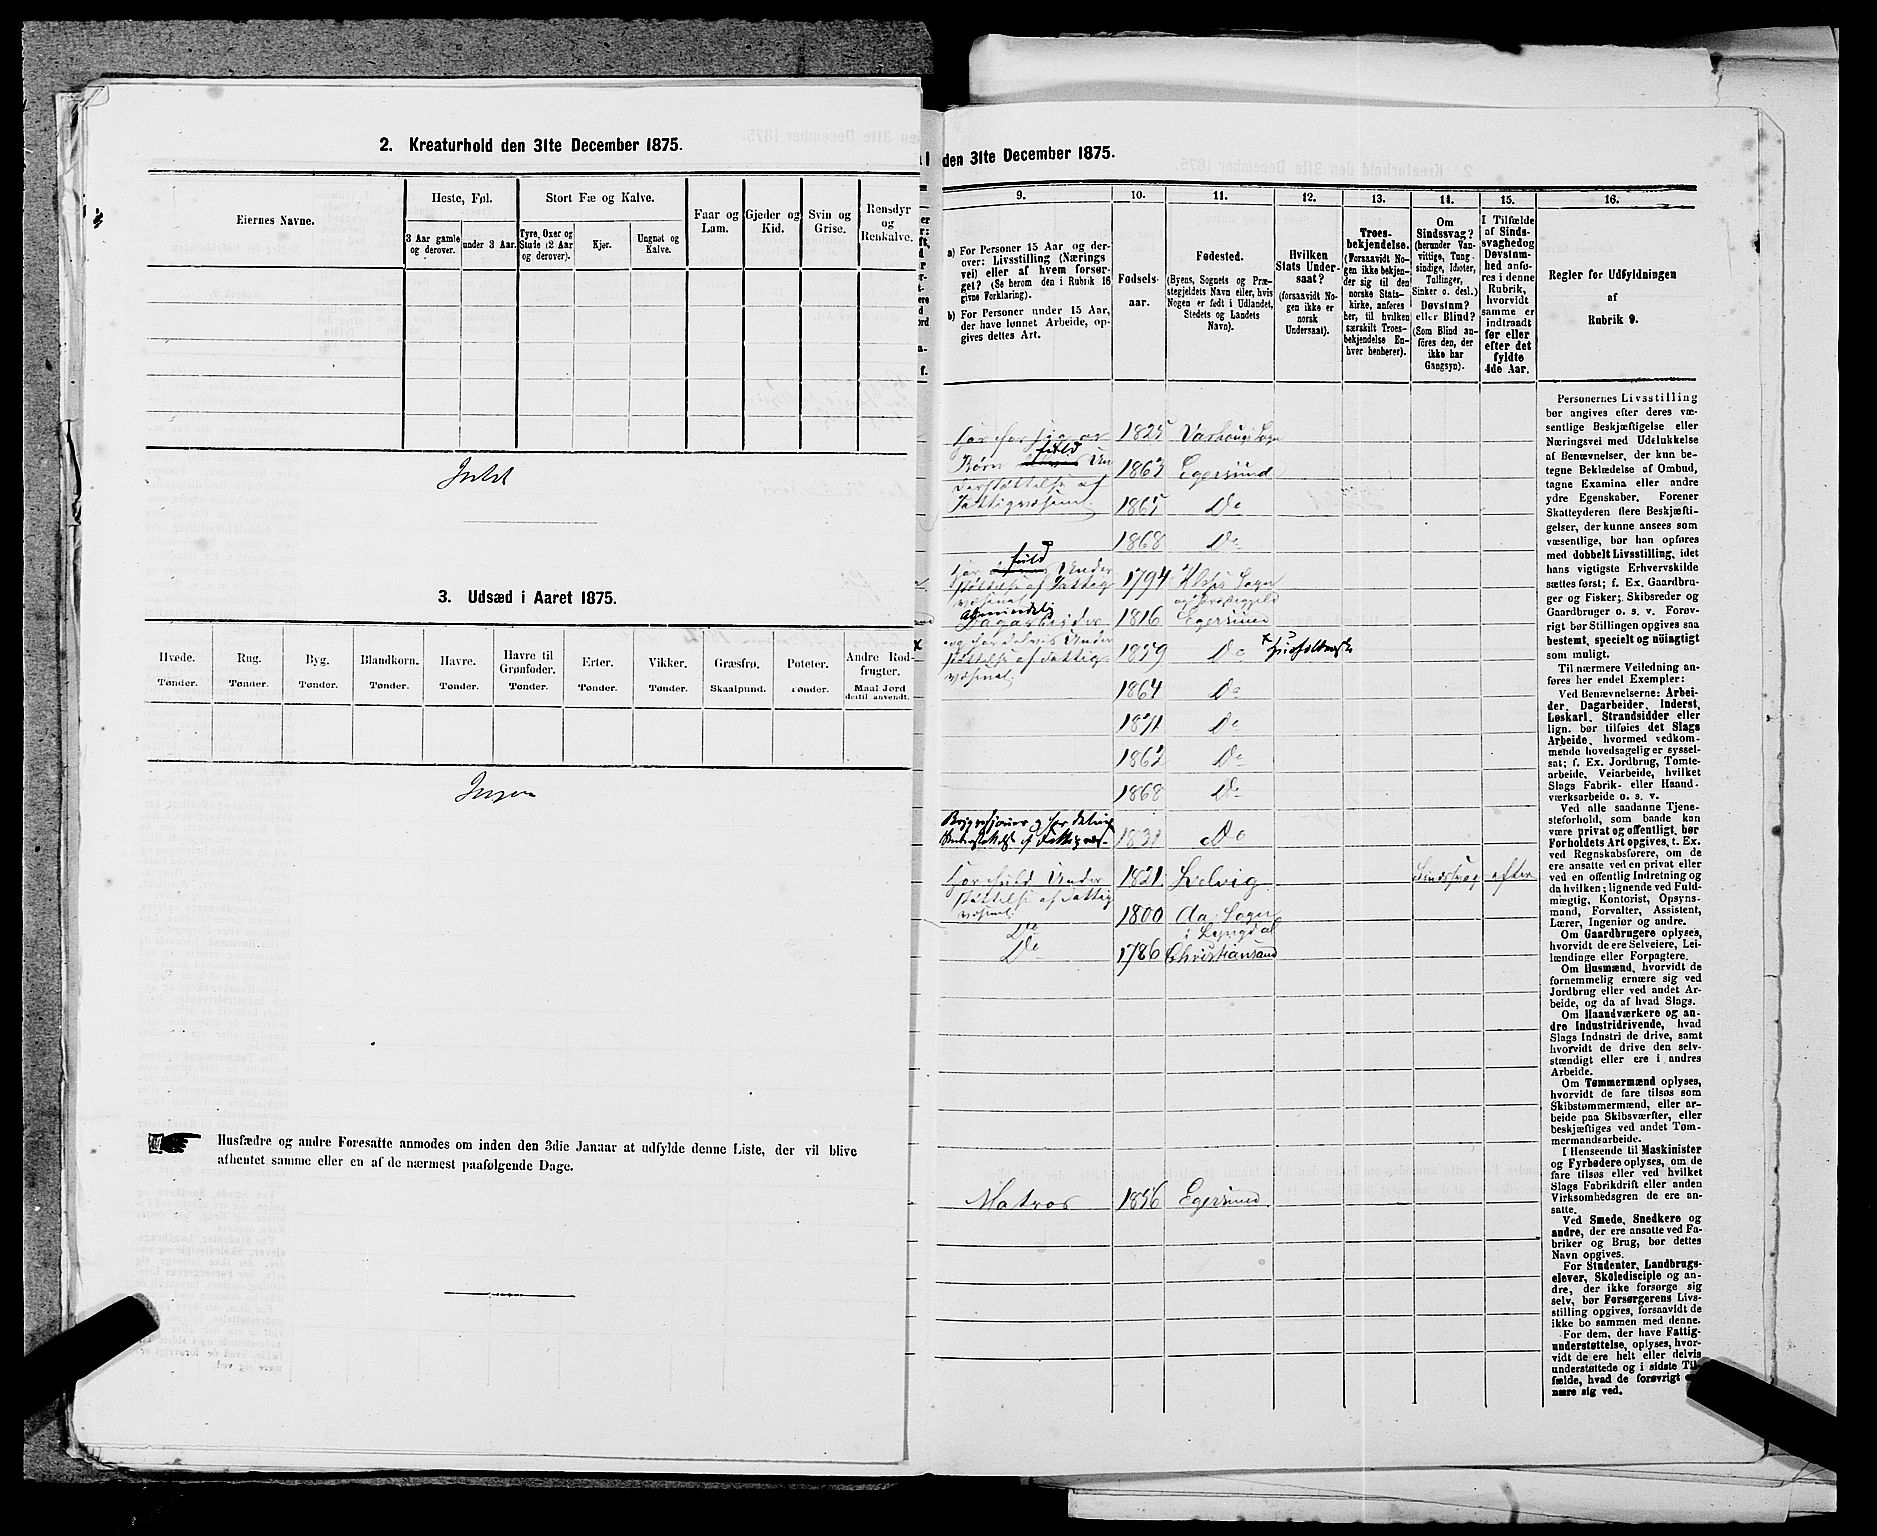 2. Kreaturhold den 31te December 1875.
Eiernes Navne.
Heste, Føl.
3 Aar gamle og derover.
under 3 Aar.
Stort Fæ og Kalve.
Tyre, Oxer og Stude (2 Aar og derover).
Kjør.
Ungnøt og Kalve.
Faar og Lam.
Gjeder og Kid.
Svin og Grise.
Rensdyr og Renkalve.
3. Udsæd i Aaret 1875.
Hvede. Tønder.
Rug. Tønder.
Byg. Tønder.
Blandkorn. Tønder.
Havre. Tønder.
Havre til Grønfoder. Tønder.
Erter. Tønder.
Vikker. Tønder.
Græsfrø. Skaalpund.
Poteter. Tønder.
Andre Rodfrugter. Maal Jord dertil anvendt.
Ingen
Husfædre og andre Foresatte anmodes om inden den 3die Januar at udfylde denne Liste, der vil blive
afhentet samme eller en af de nærmest paafølgende Dage.
den 31te December 1875.
9.
a) For Personer 15 Aar og derover: Livsstilling (Næringsvei) eller af hvem forsørget? (Se herom den i Rubrik 16 givne Forklaring).
b) For Personer under 15 Aar, der have lønnet Arbeide, opgives dettes Art.
10.
Fødselsaar.
11.
Fødested.
(Byens, Sognets og Præstegjeldets Navn eller, hvis Nogen er født i Udlandet, Stedets og Landets Navn).
12.
Hvilken Stats Undersaat?
(forsaavidt Nogen ikke er norsk Undersaat).
13.
Troesbekjendelse.
(Forsaavidt Nogen ikke bekjender sig til den norske Statskirke, anføres her, til hvilken særskilt Troesbekjendelse Enhver henhører).
14.
Om Sindssvag? (herunder Vanvittige, Tungsindige, Idioter, Tullinger, Sinker o. desl.) Døvstum? eller Blind? (Som Blind anføres den, der ikke har Gangsyn).
15.
I Tilfælde af Sindssvaghed og Døvstumhed anføres i denne Rubrik, hvorvidt samme er indtraadt før eller efter det fyldte 4de Aar.
16.
Regler for Udfyldningen
af
Rubrik 9.
1825
Børn fuld Un 1863 Egersund
derstøttelse af
Fattigvæsenet. 1865 Do
1868 Do
fuld Under
støttelse af Fattig 1794
væsenet
Almindelig
Dagarbeider 1816 Egersund
og har delvis Under
støttelse af Fattig 1859 Do
væsenet.
1864 Do
1871 Do
1862 Do
1868 Do
1831 Do
Har fuld Under 1821 Lervig Sindssvag efter
støttelse af Fattig
væsenet. 1800 Aa Sogn
Do i Lyngdal
Do 1786 Christiansand
Matros 1856 Egersund
Personernes Livsstilling
bør angives efter deres væ-
sentlige Beskjæftigelse eller
Næringsvei med Udelukkelse
af Benævnelser, der kun be-
tegne Beklædelse af Ombud,
tagne Examina eller andre
ydre Egenskaber. Forener
Skatteyderen flere Beskjæfti-
gelser, der kunne ansees som
væsentlige, bør han opføres
med dobbelt Livsstilling, idet
hans vigtigste Erhvervskilde
sættes først; f. Ex. Gaardbru-
ger og Fisker; Skibsreder og
Gaardbruger o. s. v. Forøv-
rigt bør Stillingen opgives saa
bestemt, specielt og nöiagtigt
som muligt.
Til nærmere Veiledning an-
føres her endel Exempler:
Ved Benævnelserne: Arbei-
der, Dagarbeider, Inderst,
Løskarl, Strandsidder eller
lign. bør tilføies det Slags
Arbeide, hvormed vedkom-
mende hovedsagelig er syssel-
sat; f. Ex. Jordbrug, Tomte-
arbeide, Veiarbeide, hvilket
Slags Fabrik- eller Haand-
værksarbeide o. s. v.
Ved alle saadanne Tjene-
steforhold, som baade kan
være privat og offentligt, bør
Forholdets Art opgives, t. Ex.
ved Regnskabsførere, om de
ere ansatte ved en privat eller
ved en offentlig Indretning og
da hvilken; lignende ved Fuld-
mægtig, Kontorist, Opsyns-
mand, Forvalter, Assistent,
Lærer, Ingeniør og andre.
Om Gaardbrugere oplyses,
hvorvidt de ere Selveiere, Lei-
lændinge eller Forpagtere.
Om Husmænd, hvorvidt de
fornemmelig ernære sig ved
Jordbrug eller ved andet Ar-
beide, og da af hvad Slags.
Om Haandværkere og an-
dre Industridrivende, hvad
Slags Industri de drive, samt
hvorvidt de drive den selv-
stændigt eller ere i andres
Arbeide.
Om Tømmermænd oplyses,
hvorvidt de fare tilsøs som
Skibstømmermænd, eller ar-
beide paa Skibsværfter, eller
beskjæftiges ved andet Tøm-
mermandsarbeide.
I Henseende til Maskinister
og Fyrbødere oplyses, om de
fare tilsøs eller ved hvilket
Slags Fabrikdrift eller anden
Virksomhedsgren de ere an-
satte.
Ved Smede, Snedkere og
andre, der ere ansatte ved Fa-
briker og Brug, bør dettes
Navn opgives.
For Studenter, Landbrugs-
elever, Skoledisciple og an-
dre, der ikke forsørge sig
selv, bør Forsørgerens Livs-
stilling opgives, forsaavidt de
ikke bo sammen med denne.
For dem, der have Fattig-
understøttelse, oplyses, hvor-
vidt de ere helt eller delvis
understøttede og i sidste Til-
fælde, hvad de forøvrigt er-
nære sig ved.